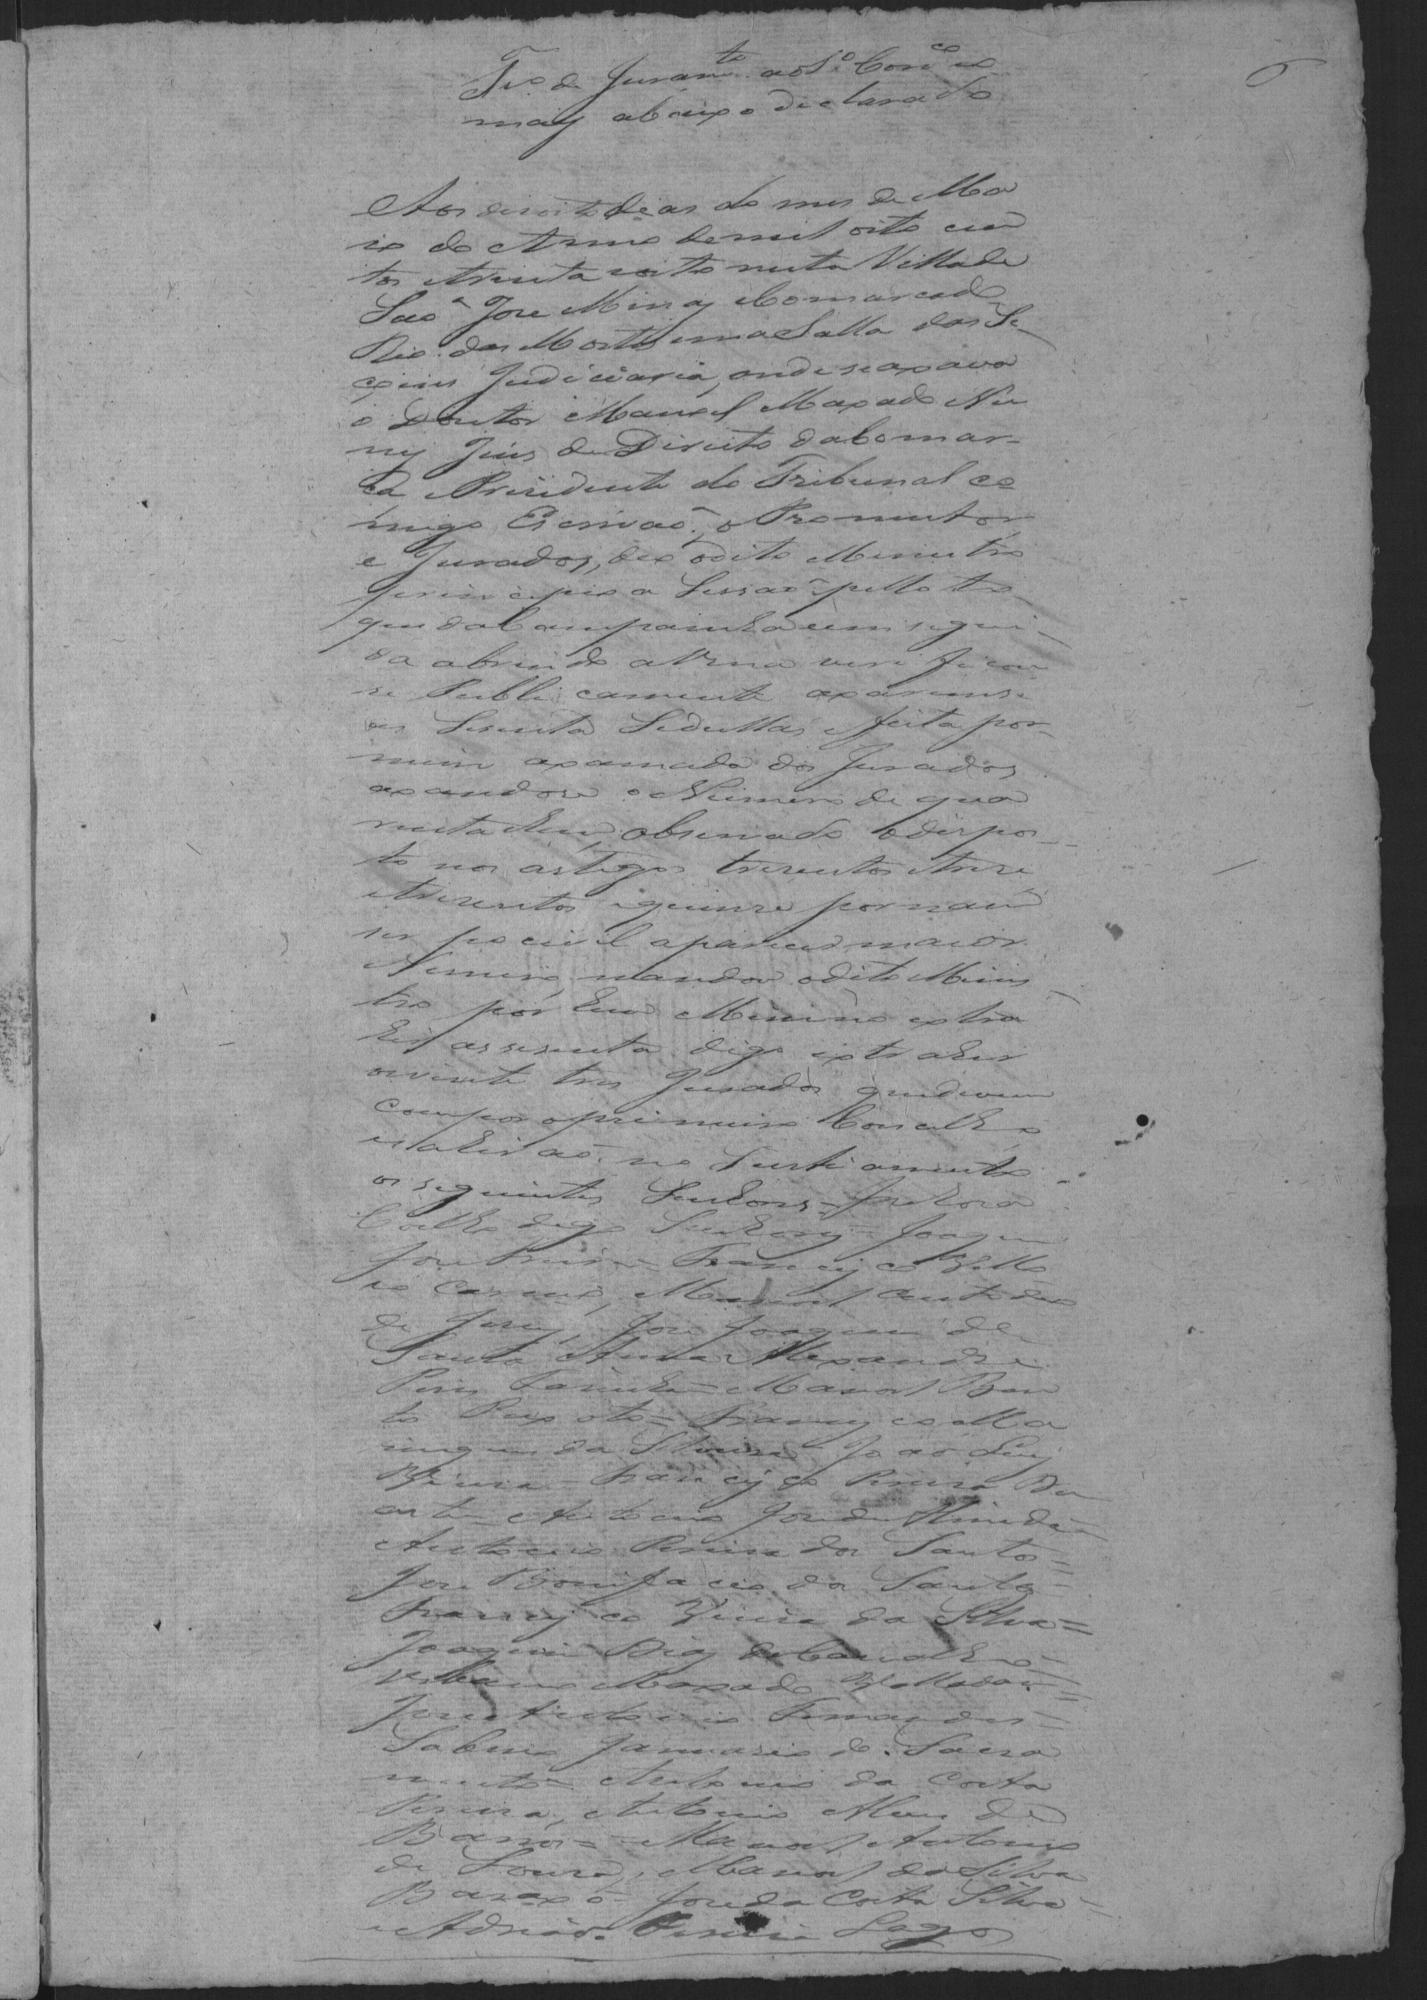 6
T.º de Juram.to ao 1.º Con.co e
mais abaixo declarado
Aos desoito dias do mes de Ma
io do Anno de mil oito cen
tos e trinta e oito nesta Villa de
Saõ Jose Minas Comarca do
Rio das Mortes em a Salla das Se
çoins Judiciaria, onde se axava
o Doutor Manoel Maxado Nu
nes Juis de Direito da Comar-
ca e Presidente do Tribunal co
migo Escrivaõ, o Promutor
e Jurados, deo o dito Menistro
principio a Sessaõ pello to
que da Campainha e em segui-
da abrindo a Urna verificou
se Publicamente axaremse
as Sesenta Sedullas e feita por
mim axamada dos Jurados
axandose o Numero de qua
renta e hum, observado o dispos-
to nos artigos tresentos e trese
e tresentos e quinse por naõ
ser pocivel aparecer maior
Numero mandou o dito Minis
tro por hum Menino extra
hir as sesenta digo extrahir
os vinte tres Jurados que devem
compor o primeiro Concelho
e sahiraõ no Surtiamento
os seguintes Senhores =
Coelho digo Senhores = Joaquim
Jose = Francisco
Manoel
de Jesus, Jose Joaquim de
Santa Anna = Alexandre
Pires = Manoel Ben
to Peixoto = Francisco Ma
da Silveira = Joaõ Luis
Francisco Pereira Du
arte = Antonio Jose de Almeida =
Antonio Pereira dos Santos =
Jose Bonifacio dos Santos =
Francisco Vieira da Silva =
Joaquim Dias de Carvalho =
Maxado
Jose Antonio Fernandes =
Sabino Januario do Sacra
mento = Antonio da Costa
Pereira, Antonio Alves de
Barros = Manoel Antonio
de Souza, Manoel da Silva
Jose da Costa Silva =
e Adriaõ Pereira Lago